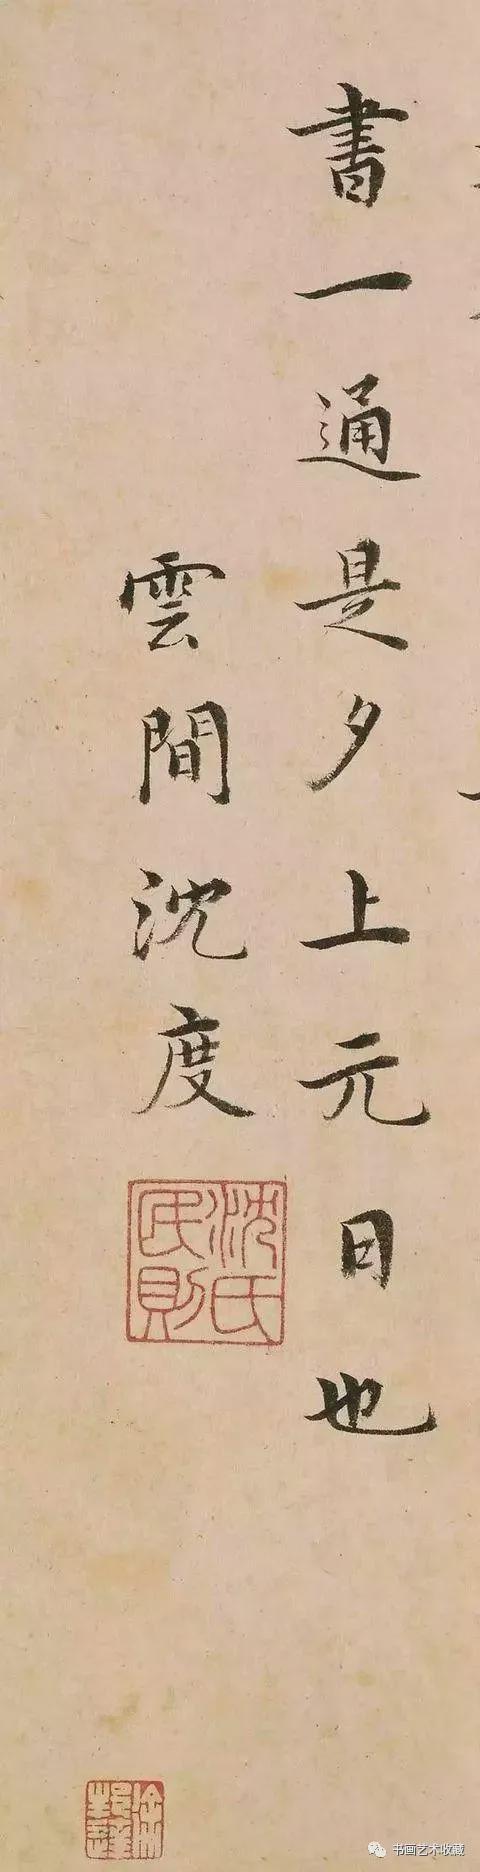 書一通是夕上元日也
雲間沈度
沈氏民則
书画艺术收藏